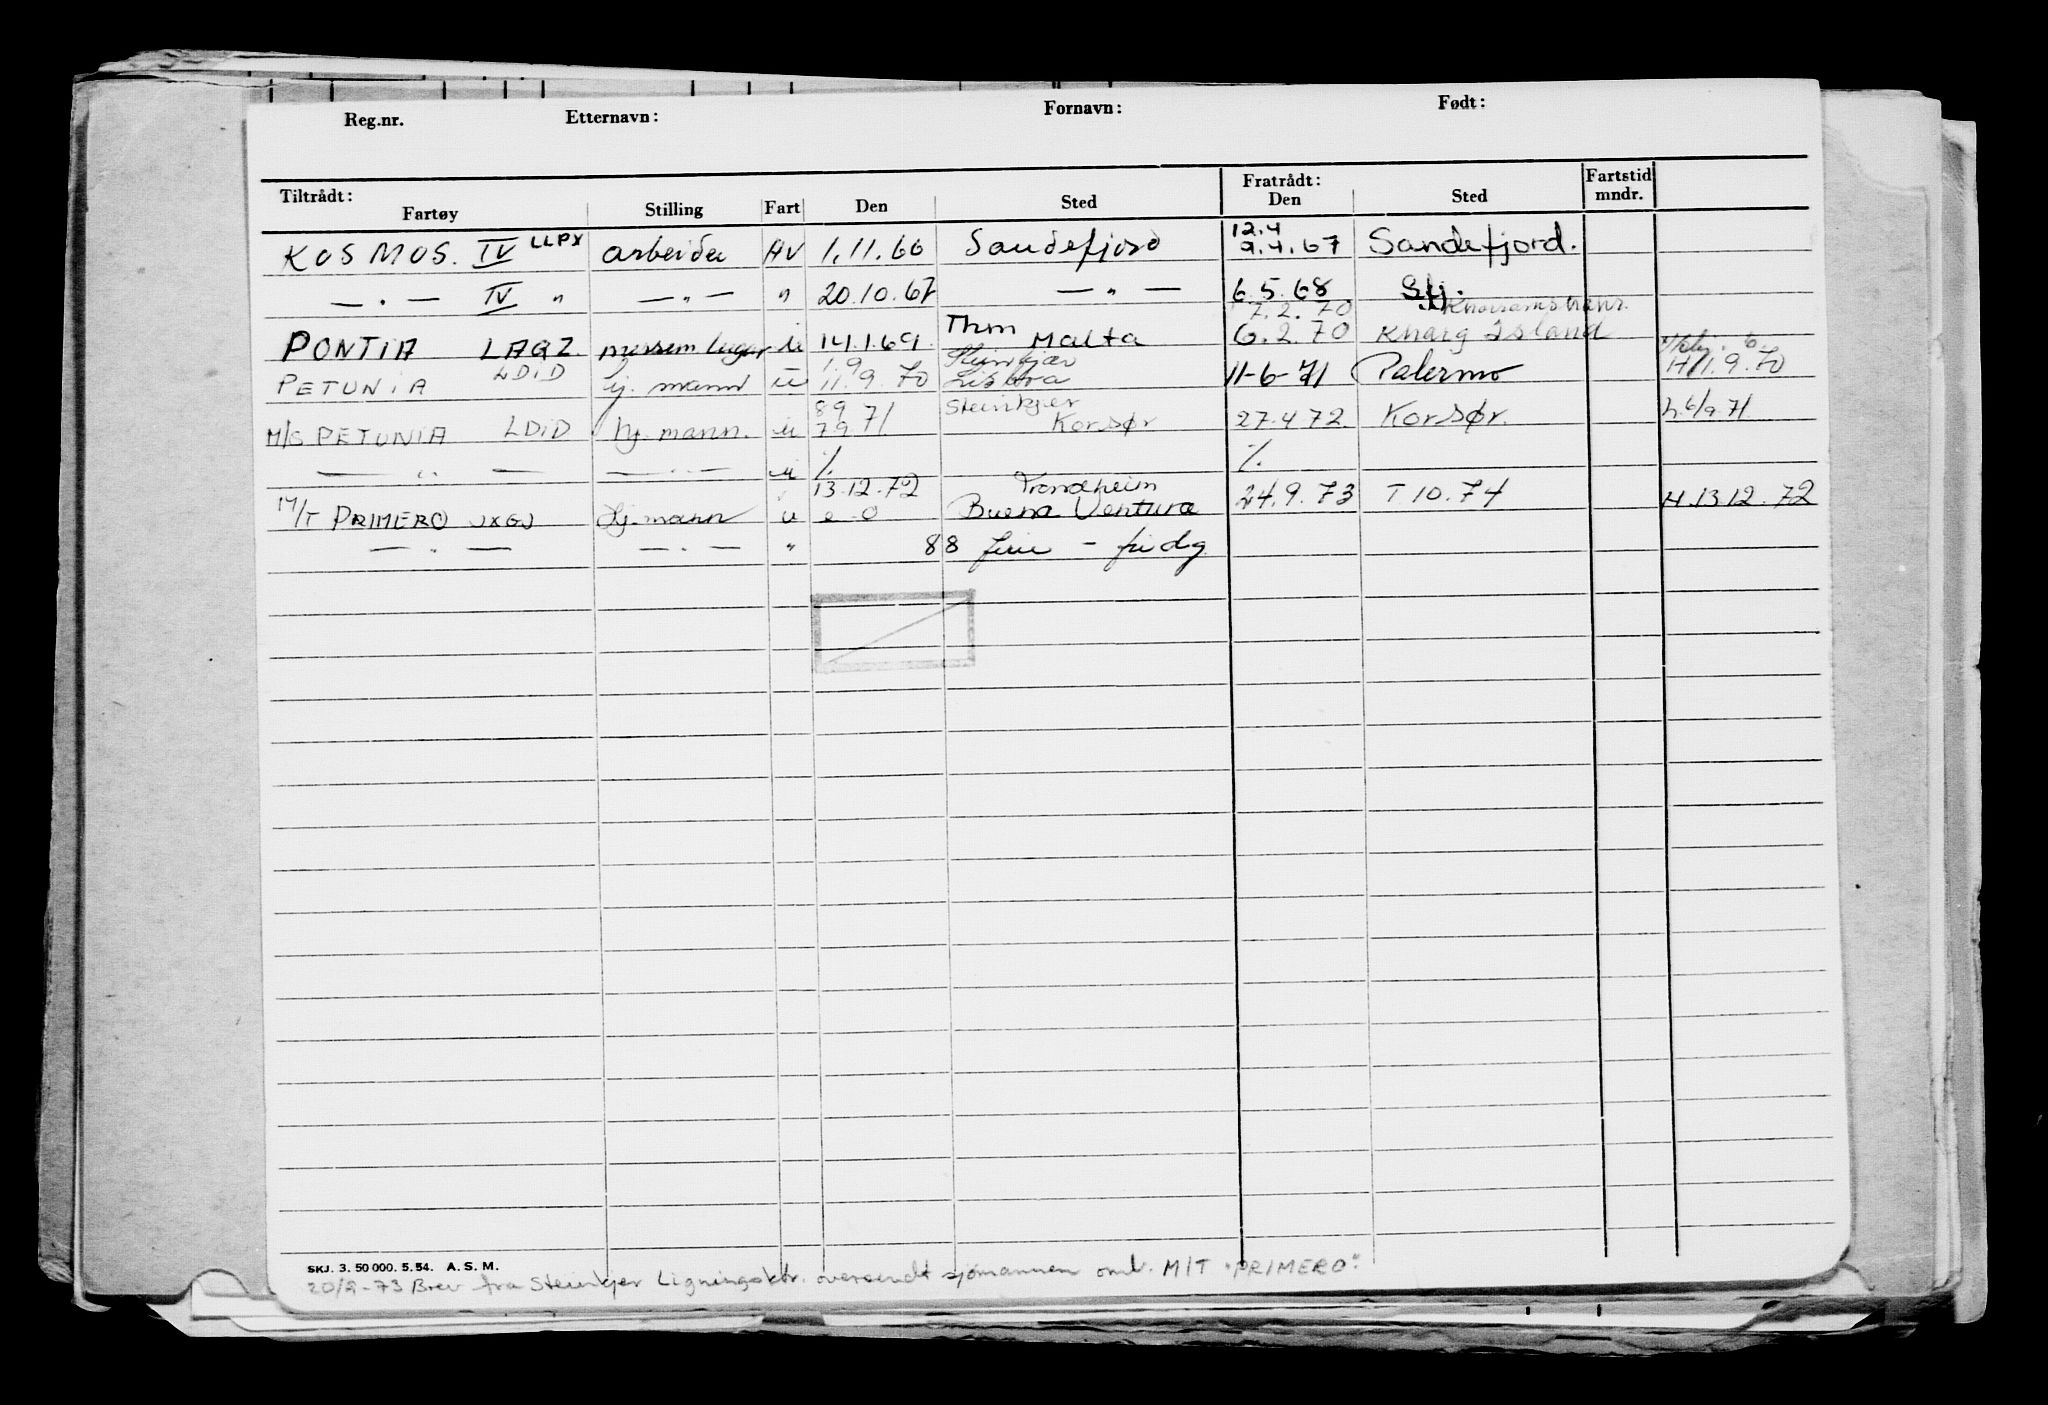 Reg.nr. Etternavn: Fornavn: Født:
Tiltrådt: Fratrådt: Fartstid
Fartøy Stilling Fart Den Sted Den Sted mndr.
KOSMOS. IV LLPX arbeider AV 1.11.66 Sandefjord 12.4 9.4.67 Sandefjord.
— " — IV " — " — " 20.10.67 — " — 6.5.68 Sfj.
7.2.70
PONTIA LAGZ u 14.1.69. Thm Malta 6.2.70 Kharg Island
PETUNIA LDID j. mann u 1.9 11.9.70 Steinkjær Lisboa 11-6-71 Palermo H 1.9.70
M/S PETUNIA LDID tj. mann. u 89 79 71 Steinkjer Korsør 27.4 72. Korsør. h. 6/9 71
— " — — " — u %. %.
13.12.72 Trondheim
M/T PRIMERO JXGJ tj. mann u e-o Buena Ventura 24.9.73 T 10.74 H. 13 12. 72
— " — — " — " 88 ferie - fridg
SKJ. 3. 50 000. 5. 54. A. S. M.
20/9-73 Brev fra Steinkjer Ligningsktr. oversendt sjømannen omb. M/T "PRIMERO".